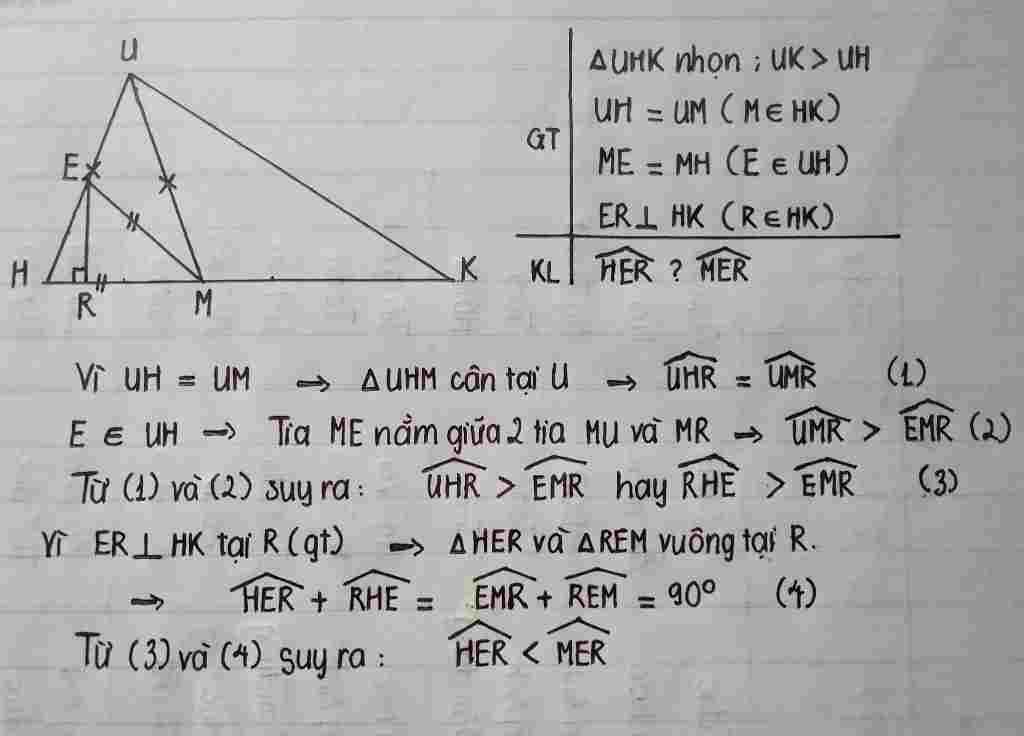 U
E
H
R
M
K
GT
ΔUHK nhọn ; UK > UH
UH = UM ( M ∈ HK)
ME = MH (E ∈ UH)
ER ⊥ HK (R ∈ HK)
KL
HER ? MER
Vì UH = UM → ΔUHM cân tại U → UHR = UMR (1)
E ∈ UH → Tia ME nằm giữa 2 tia MU và MR → UMR > EMR (2)
Từ (1) và (2) suy ra : UHR > EMR hay RHE > EMR (3)
Vì ER ⊥ HK tại R (gt) → ΔHER và ΔREM vuông tại R.
→ HER + RHE = EMR + REM = 90° (4)
Từ (3) và (4) suy ra : HER < MER